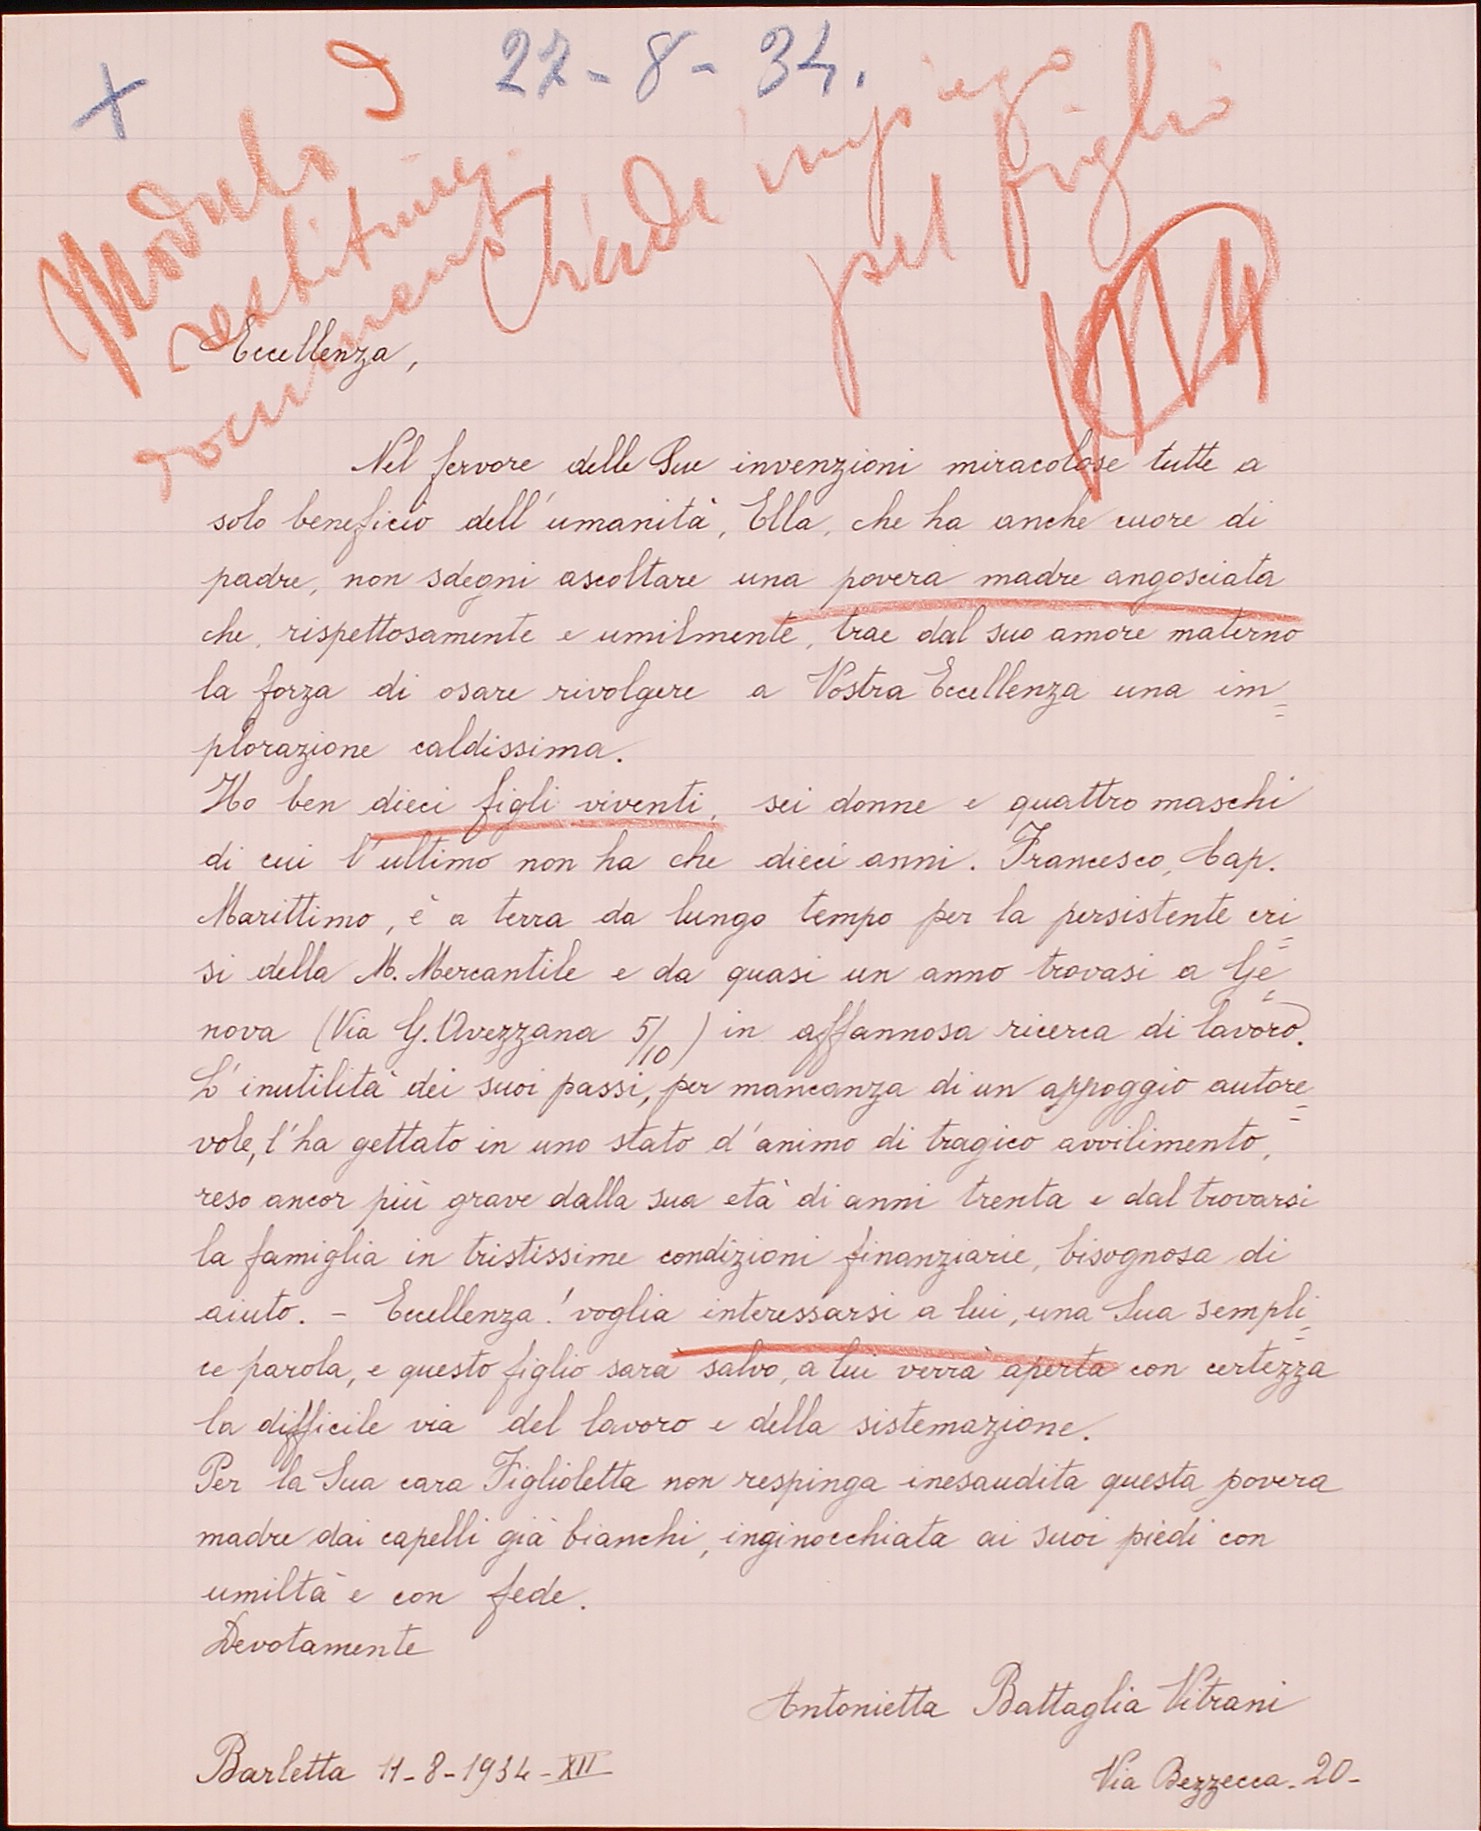 + 22-8-34.
Modulo
restituire
documento
Chiede impiego
pel figlio
Eccellenza,
Nel fervore delle Sue invenzioni miracolose tutte a
solo beneficio dell'umanità, Ella, che ha anche cuore di
padre, non sdegni ascoltare una povera madre angosciata
che, rispettosamente e umilmente, trae dal suo amore materno
la forza di osare rivolgere a Vostra Eccellenza una im=
plorazione caldissima.
Ho ben dieci figli viventi, sei donne e quattro maschi
di cui l'ultimo non ha che dieci anni. Francesco, Cap.
Marittimo, è a terra da lungo tempo per la persistente cri=
si della M. Mercantile e da quasi un anno trovasi a Ge=
nova (Via G. Avezzana 5/10) in affannosa ricerca di lavoro.
L'inutilità dei suoi passi, per mancanza di un appoggio autore=
vole, l'ha gettato in uno stato d'animo di tragico avvilimento,
reso ancor più grave dalla sua età di anni trenta e dal trovarsi
la famiglia in tristissime condizioni finanziarie, bisognosa di
aiuto. - Eccellenza! voglia interessarsi a lui, una Sua sempli=
ce parola, e questo figlio sarà salvo, a lui verrà aperta con certezza
la difficile via del lavoro e della sistemazione.
Per la Sua cara Figlioletta non respinga inesaudita questa povera
madre dai capelli già bianchi, inginocchiata ai suoi piedi con
umiltà e con fede.
Devotamente
Antonietta Battaglia Vitrani
Barletta 11-8-1934-XII
Via Bezzecca-20-